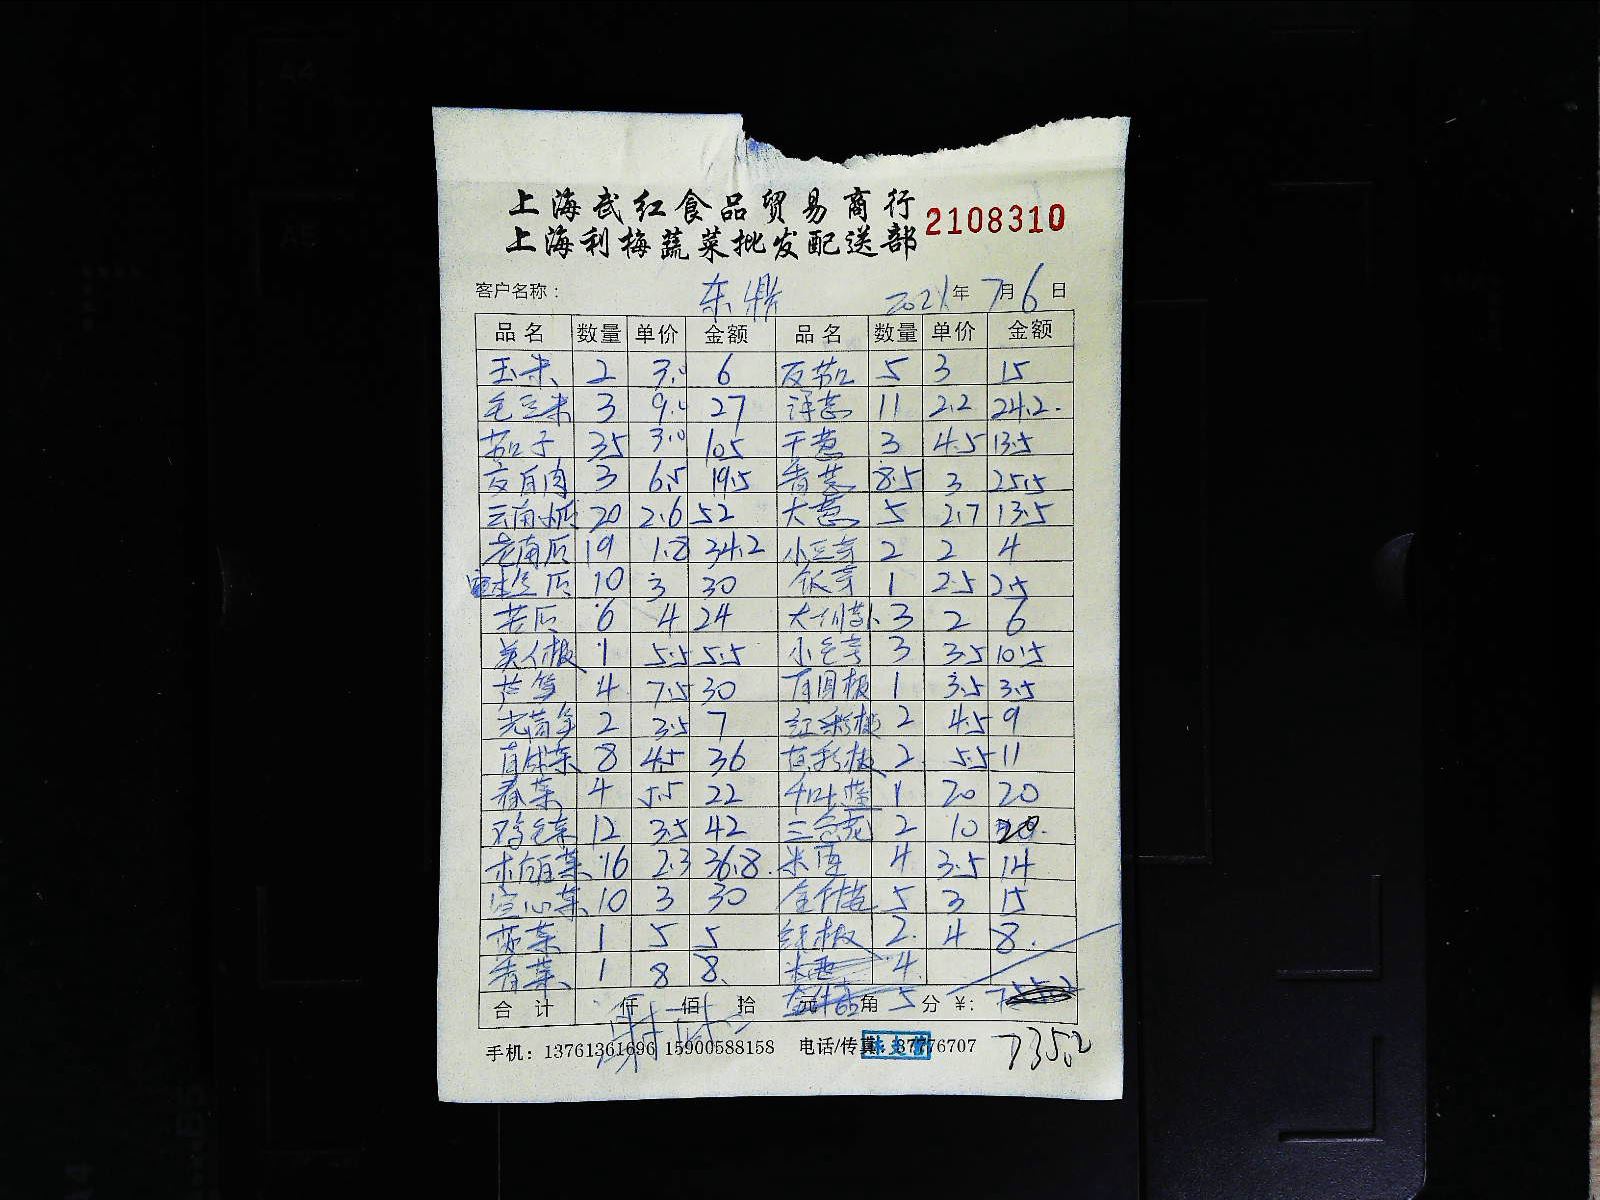 上海武红食品贸易商行
上海利梅蔬菜批发配送部
2108310
客户名称： 东鼎 2021年7月6日
品名 数量 单价 金额 品名 数量 单价 金额
玉米 2 3.0 6 反茄 5 3 15
毛豆米 3 9.0 27 洋葱 11 2.2 24.2
茄子 35 3.0 105 干葱 3 4.5 13.5
交白肉 3 6.5 19.5 香菜 8.5 3 25.5
云南小瓜 20 2.6 52 大葱 5 2.7 13.5
老南瓜 19 1.8 34.2 小豆芽 2 2 4
10 3 30 1 2.5 2.5
苦瓜 6 4 24 3 2 6
美人椒 1 5.5 5.5 3 3.5 10.5
芦笋 4 7.5 30 1 3.5 3.5
光莴笋 2 3.5 7 红彩椒 2 4.5 9
8 4.5 36 黄彩椒 2 5.5 11
春菜 4 5.5 22 1 20 20
鸡毛菜 12 3.5 42 三色花 2 10 20
16 2.3 36.8 米西 4 3.5 14
空心菜 10 3 30 5 3 15
菠菜 1 5 5 2 4 8
青菜 1 8 8 米西 4
合计 仟 佰 拾 元 角 分 ¥: 5
谢谢
手机：13761361696 15900588158 电话/传真：37776707
735.2